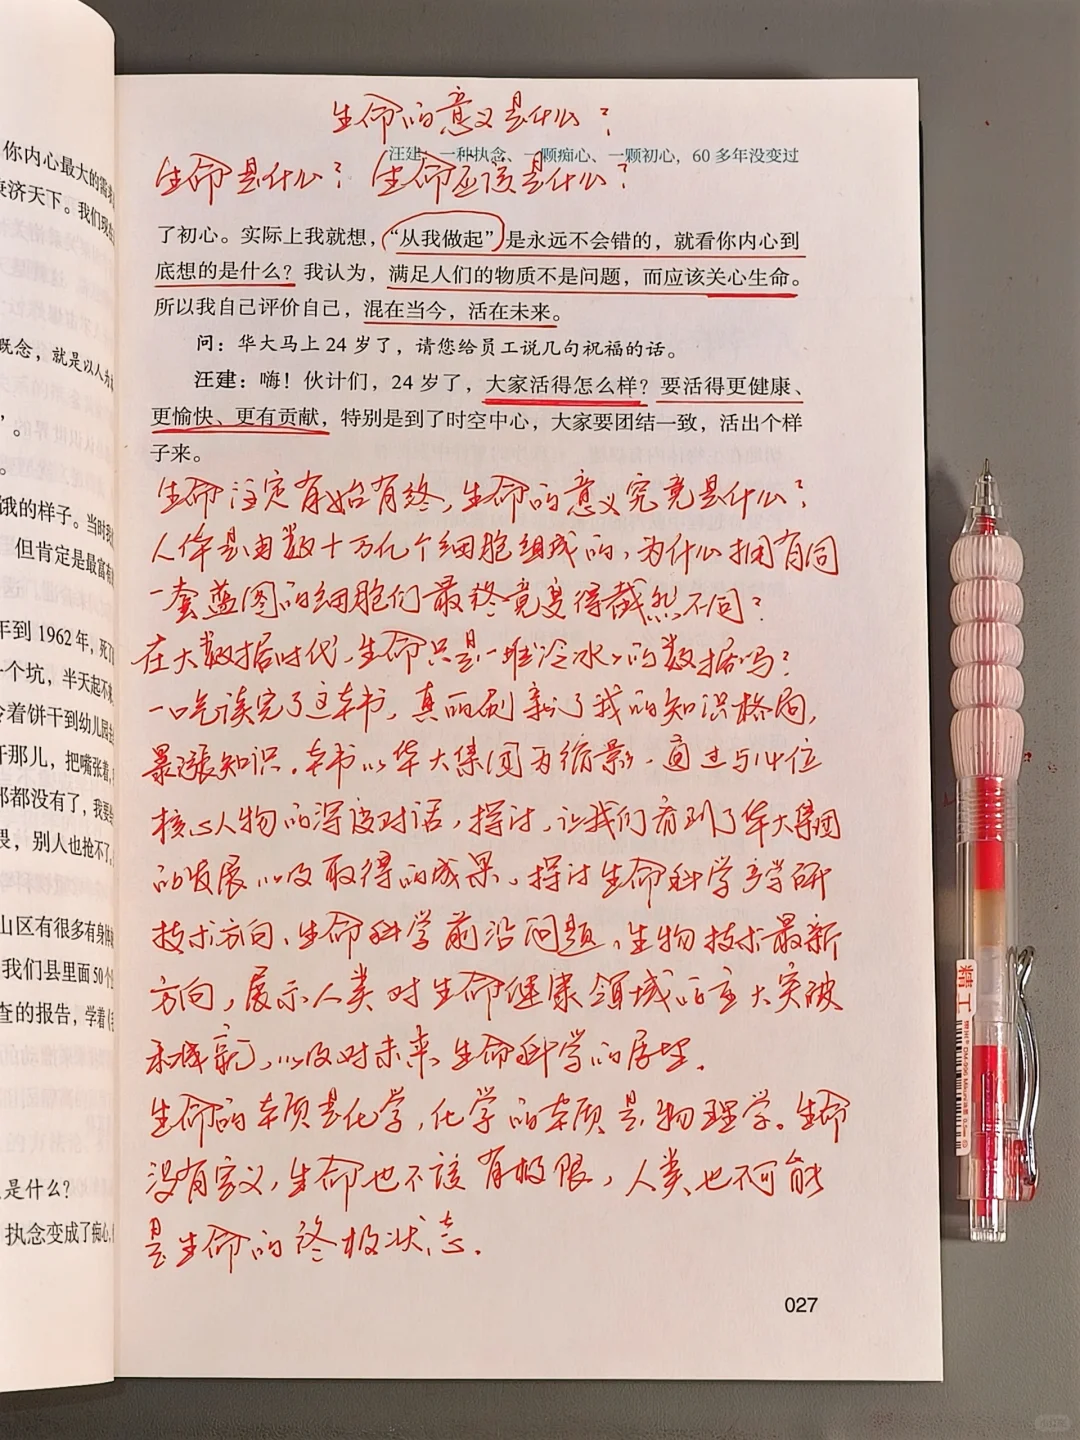 你内心最大的需
济天下。我们现
概念，就是以人为
”。
饿的样子。当时我
但肯定是最富有
年到 1962 年，死了
一个坑，半天起不
着饼干到幼儿园
干那儿，把嘴张着，
都没有了，我要
畏，别人也抢不了，
山区有很多有身体
我们县里面50个
查的报告，学着《
是什么？
执念变成了痴心，
生命的意义是什么？
汪建：一种执念、一颗痴心、一颗初心，60 多年没变过
生命是什么？ 生命应该是什么？
了初心。实际上我就想，“从我做起”是永远不会错的，就看你内心到
底想的是什么？我认为，满足人们的物质不是问题，而应该关心生命。
所以我自己评价自己，混在当今，活在未来。
问：华大马上 24 岁了，请您给员工说几句祝福的话。
汪建：嗨！伙计们，24 岁了，大家活得怎么样？要活得更健康、
更愉快、更有贡献，特别是到了时空中心，大家要团结一致，活出个样
子来。
生命注定有始有终，生命的意义究竟是什么？
人体是由数十万亿个细胞组成的，为什么拥有同
一套蓝图的细胞们最终竟变得截然不同？
在大数据时代，生命只是一堆冷冰冰的数据吗？
一口气读完了这本书，真的刷新了我的知识格局，
暴涨知识。本书以华大集团为缩影，通过与14位
核心人物的深度对话，探讨，让我们看到了华大集团
的发展以及取得的成果。探讨生命科学产学研
技术方向、生命科学前沿问题、生物技术最新
方向，展示人类对生命健康领域的重大突破
和成就，以及对未来生命科学的展望。
生命的本质是化学，化学的本质是物理学。生命
没有定义，生命也不该有极限，人类也不可能
是生命的终极状态。
027
精工